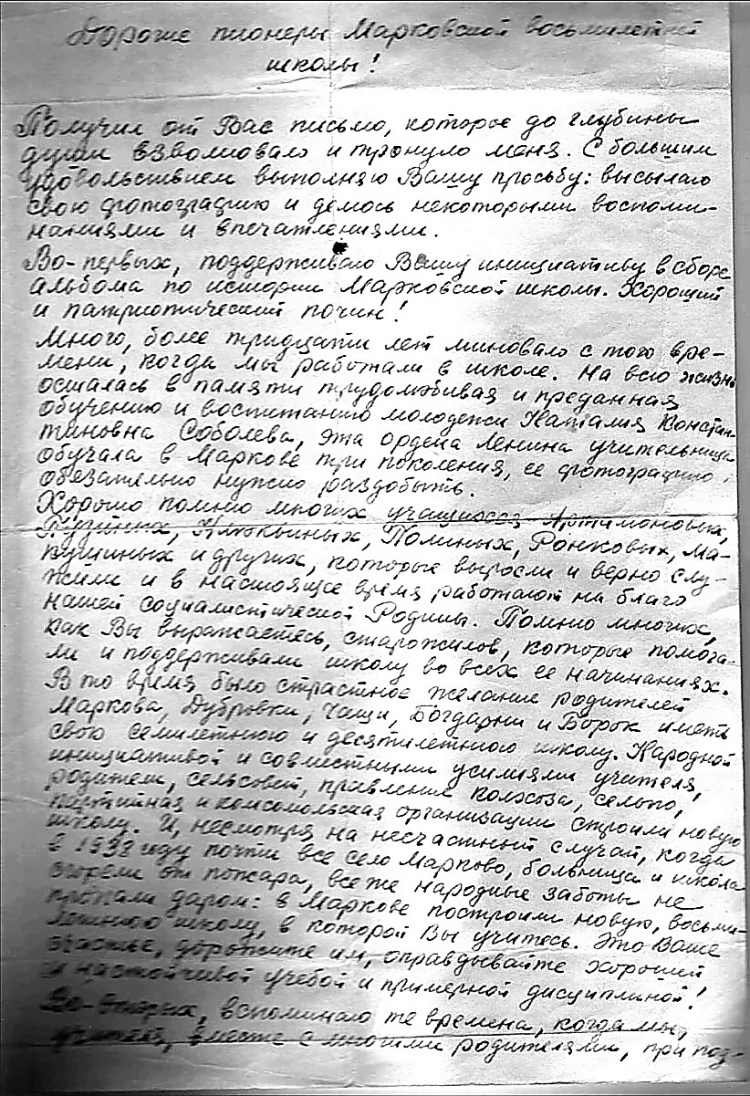 Дорогие пионеры Марковской восьмилетней
школы!
Получил от Вас письмо, которое до глубины
души взволновало и тронуло меня. С большим
удовольствием выполняю Вашу просьбу: высылаю
свою фотографию и делюсь некоторыми воспоми-
наниями и впечатлениями.
Во-первых, поддерживаю Вашу инициативу в сборе
альбома по истории Марковской школы. Хороший
и патриотический почин!
Много, более тридцати лет миновало с того вре-
мени, когда мы работали в школе. На всю жизнь
осталась в памяти трудолюбивая и преданная
обучению и воспитанию молодежи Наталия Констан-
тиновна Соболева, эта ордена Ленина учительница
обучала в Маркове три поколения, ее фотографию
обязательно нужно раздобыть.
Хорошо помню многих учащихся Артамоновых,
Клюквиных, Полиных, Ронжовых, Ма-
и других, которые выросли и верно слу-
жили и в настоящее время работают на благо
нашей социалистической Родины. Помню многих,
как Вы выражаетесь, старожилов, которые помога-
ли и поддерживали школу во всех ее начинаниях.
В то время было страстное желание родителей
Маркова, Дубровки, Чащи, Богдарни и Борок иметь
свою семилетнюю и десятилетнюю школу. Народной
инициативой и совместными усилиями учителя,
родители, сельсовет, правление колхоза, сельпо,
партийная и комсомольская организации строили новую
школу. И, несмотря на несчастный случай, когда
в году почти все село Марково, больница и школа
сгорели от пожара, все же народные заботы не
пропали даром: в Маркове построили новую, восьми-
летнюю школу, в которой Вы учитесь. Это Ваше
счастье, дорожите им, оправдывайте хорошей
и настойчивой учебой и примерной дисциплиной!
Во-вторых, вспоминаю те времена, когда мы,
учителя, вместе с многими родителями, при под-